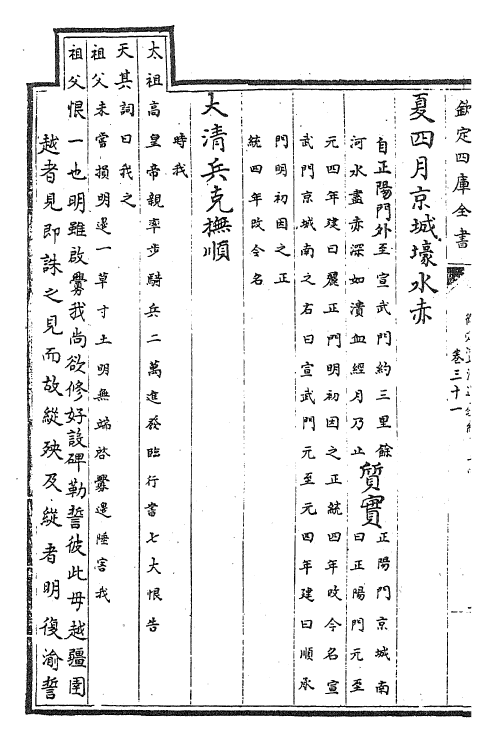 欽定四庫全書
卷三十一
夏四月京城壕水赤
自正陽門外至宣武門約三里餘
河水盡赤深如潰血經月乃止
質實
正陽門京城南
曰正陽門元至
元四年建曰麗正門明初因之正統四年改今名宣
武門京城南之右曰宣武門元至元四年建曰順承
門明初因之正
統四年改今名
大清兵克撫順
時我
太祖高皇帝親率步騎兵二萬進發臨行書七大恨告
天其詞曰我之
祖父未嘗損明邊一草寸土明無端啓釁邊陲害我
祖父恨一也明雖啟釁我尚欲修好設碑勒誓彼此毋越疆圉
越者見即誅之見而故縱殃及縱者明復渝誓